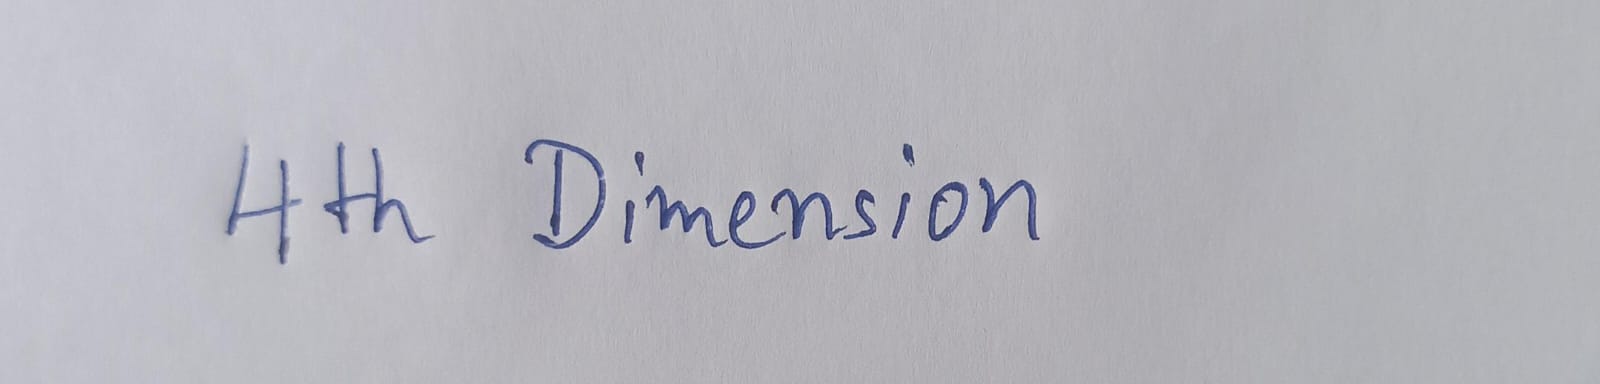 4th Dimension